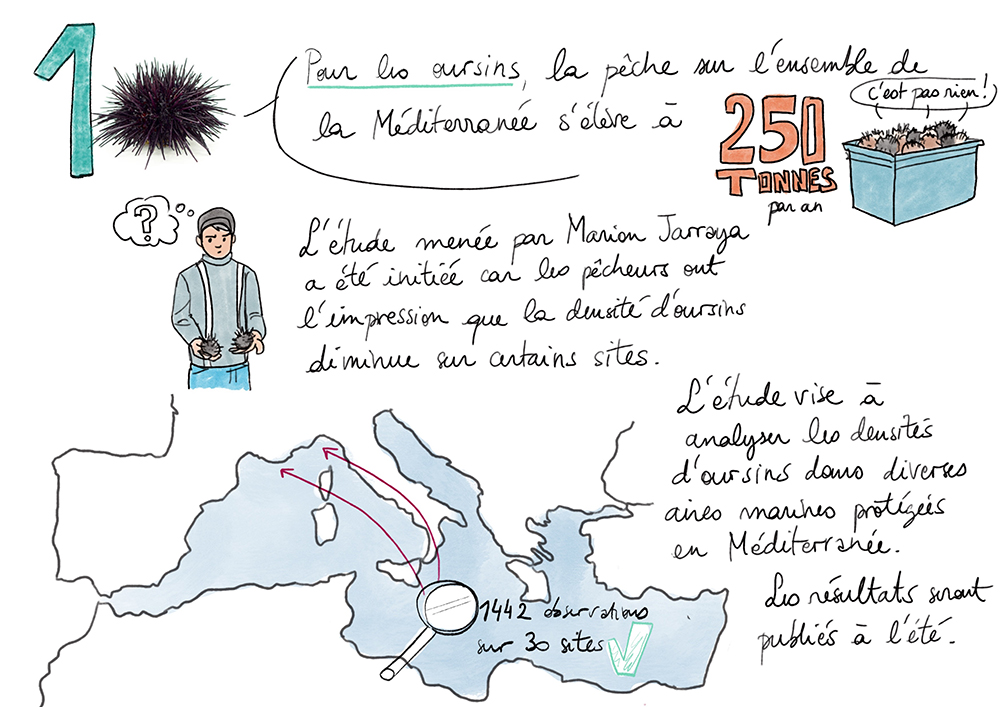 1
Pour les oursins, la pêche sur l'ensemble de
la Méditerranée s'élève à
250
TONNES
par an
c'est pas rien!
?
L'étude menée par Marion Jarraya
a été initiée car les pêcheurs ont
l'impression que la densité d'oursins
diminue sur certains sites.
L'étude vise à
analyser les densités
d'oursins dans diverses
aires marines protégées
en Méditerranée.
Les résultats seront
publiés à l'été.
1442 observations
sur 30 sites